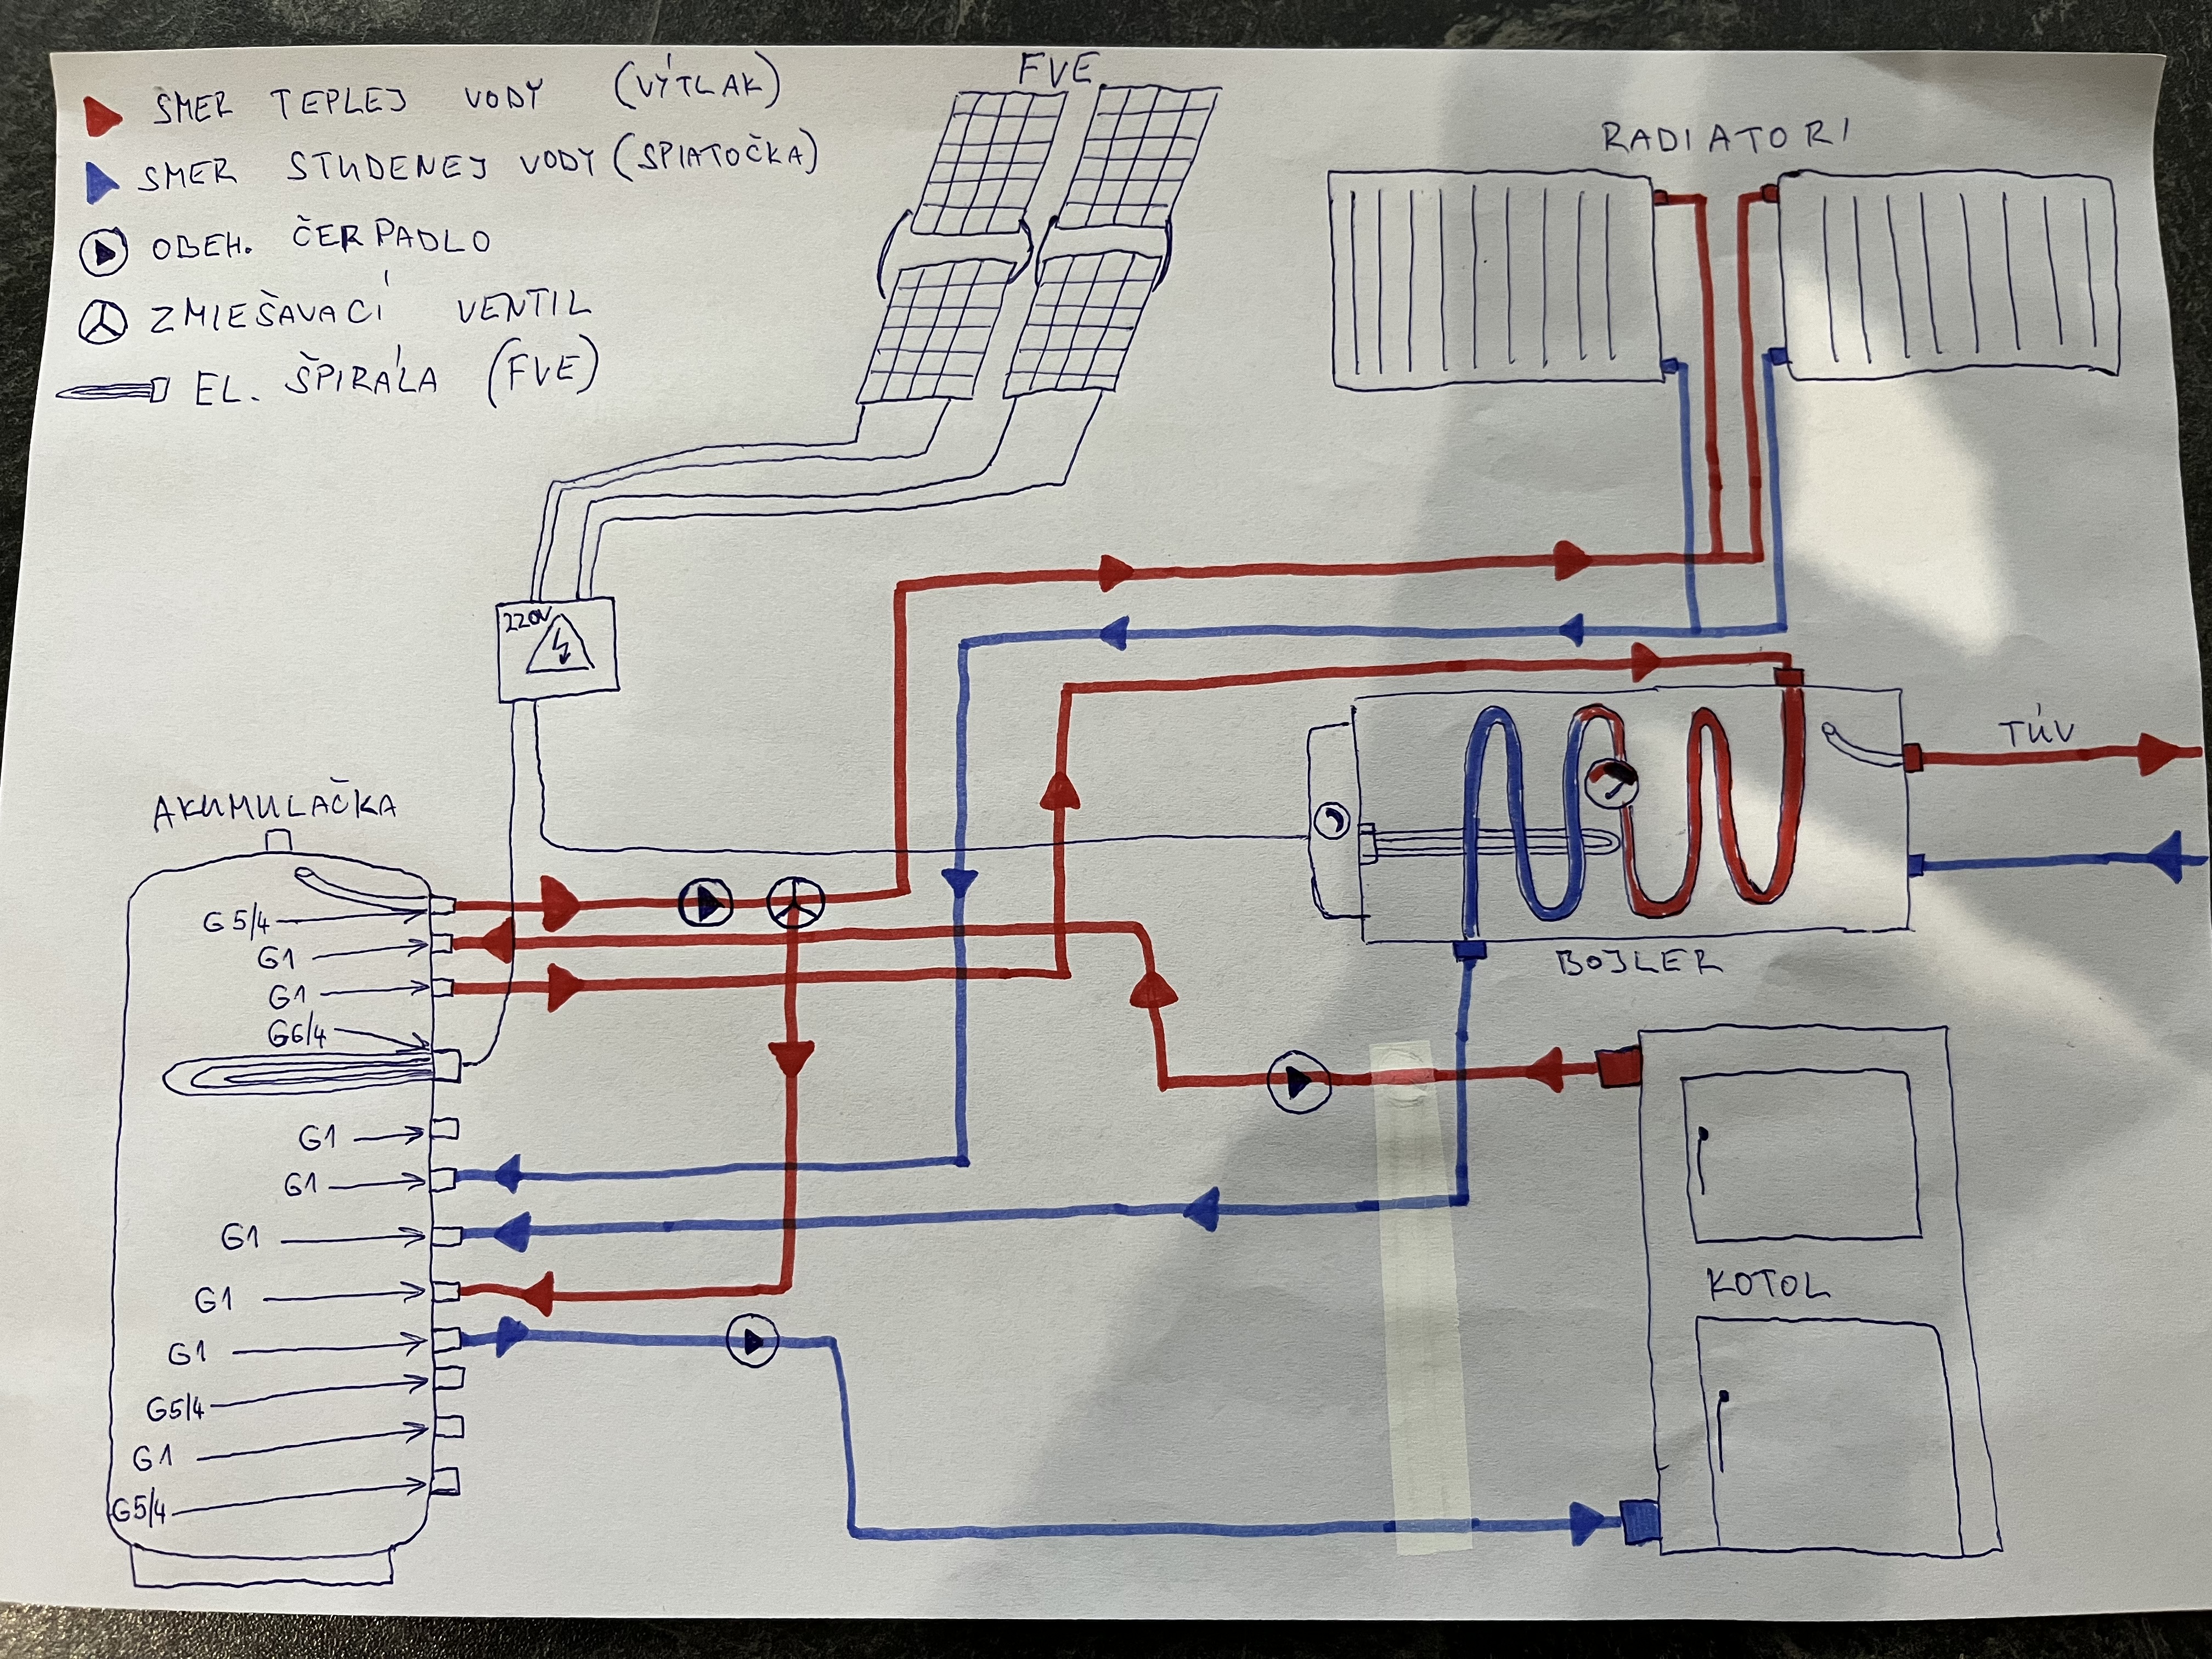 SMER TEPLEJ VODY (VÝTLAK)
SMER STUDENEJ VODY (SPIATOČKA)
OBEH. ČERPADLO
ZMIEŠAVACÍ VENTIL
EL. ŠPIRÁLA (FVE)
FVE
RADIATORI
220V
TÚV
BOJLER
AKUMULAČKA
G5/4
G1
G1
G6/4
G1
G1
G1
G1
G1
G5/4
G1
G5/4
KOTOL